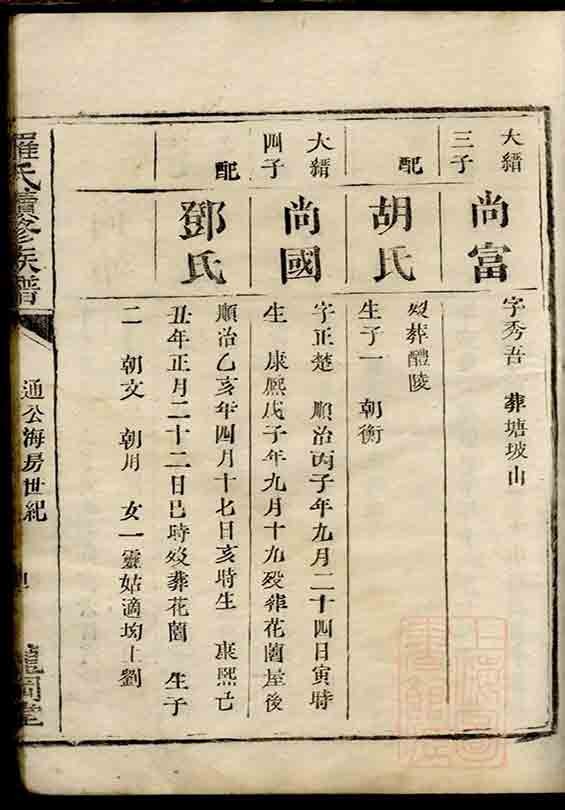 大縉
三子
尚富
字秀吾 葬塘坡山
配
胡氏
歿葬醴陵
生子一 朝衡
大縉
四子
尚國
字正楚 順治丙子年九月二十四日寅時
生 康熙戊子年九月十九歿葬花園屋後
配
鄧氏
順治乙亥年四月十七日亥時生 康熙己
丑年正月二十二日巳時歿葬花園 生子
二 朝文 朝用 女一靈姑適均上劉
羅氏續修族譜
通公海房世紀